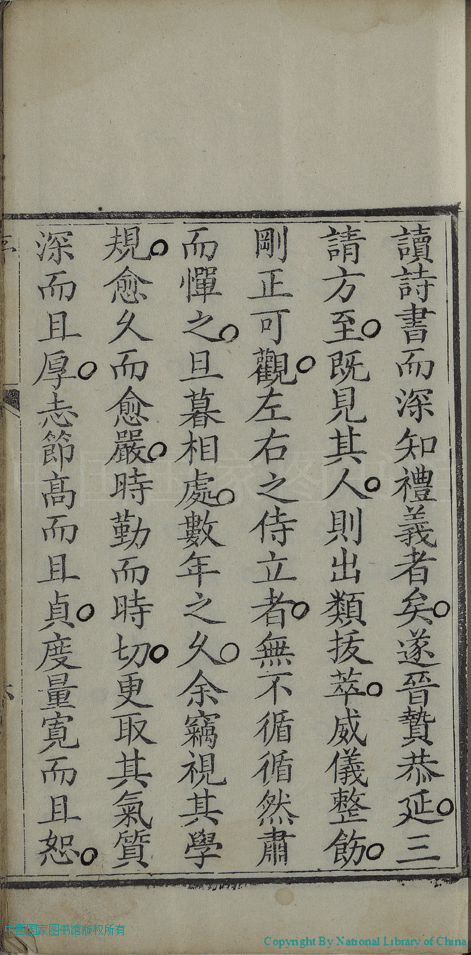 讀詩書而深知禮義者矣。遂晉贄恭延。三
請方至。既見其人。則出類拔萃。威儀整飭。
剛正可觀。左右之侍立者。無不循循然肅
而憚之。旦暮相處。數年之久。余竊視其學
規。愈久而愈嚴。時勤而時切。更取其氣質
深而且厚。志節高而且貞。度量寬而且恕。
中国国家图书馆版权所有
Copyright By National Library of China